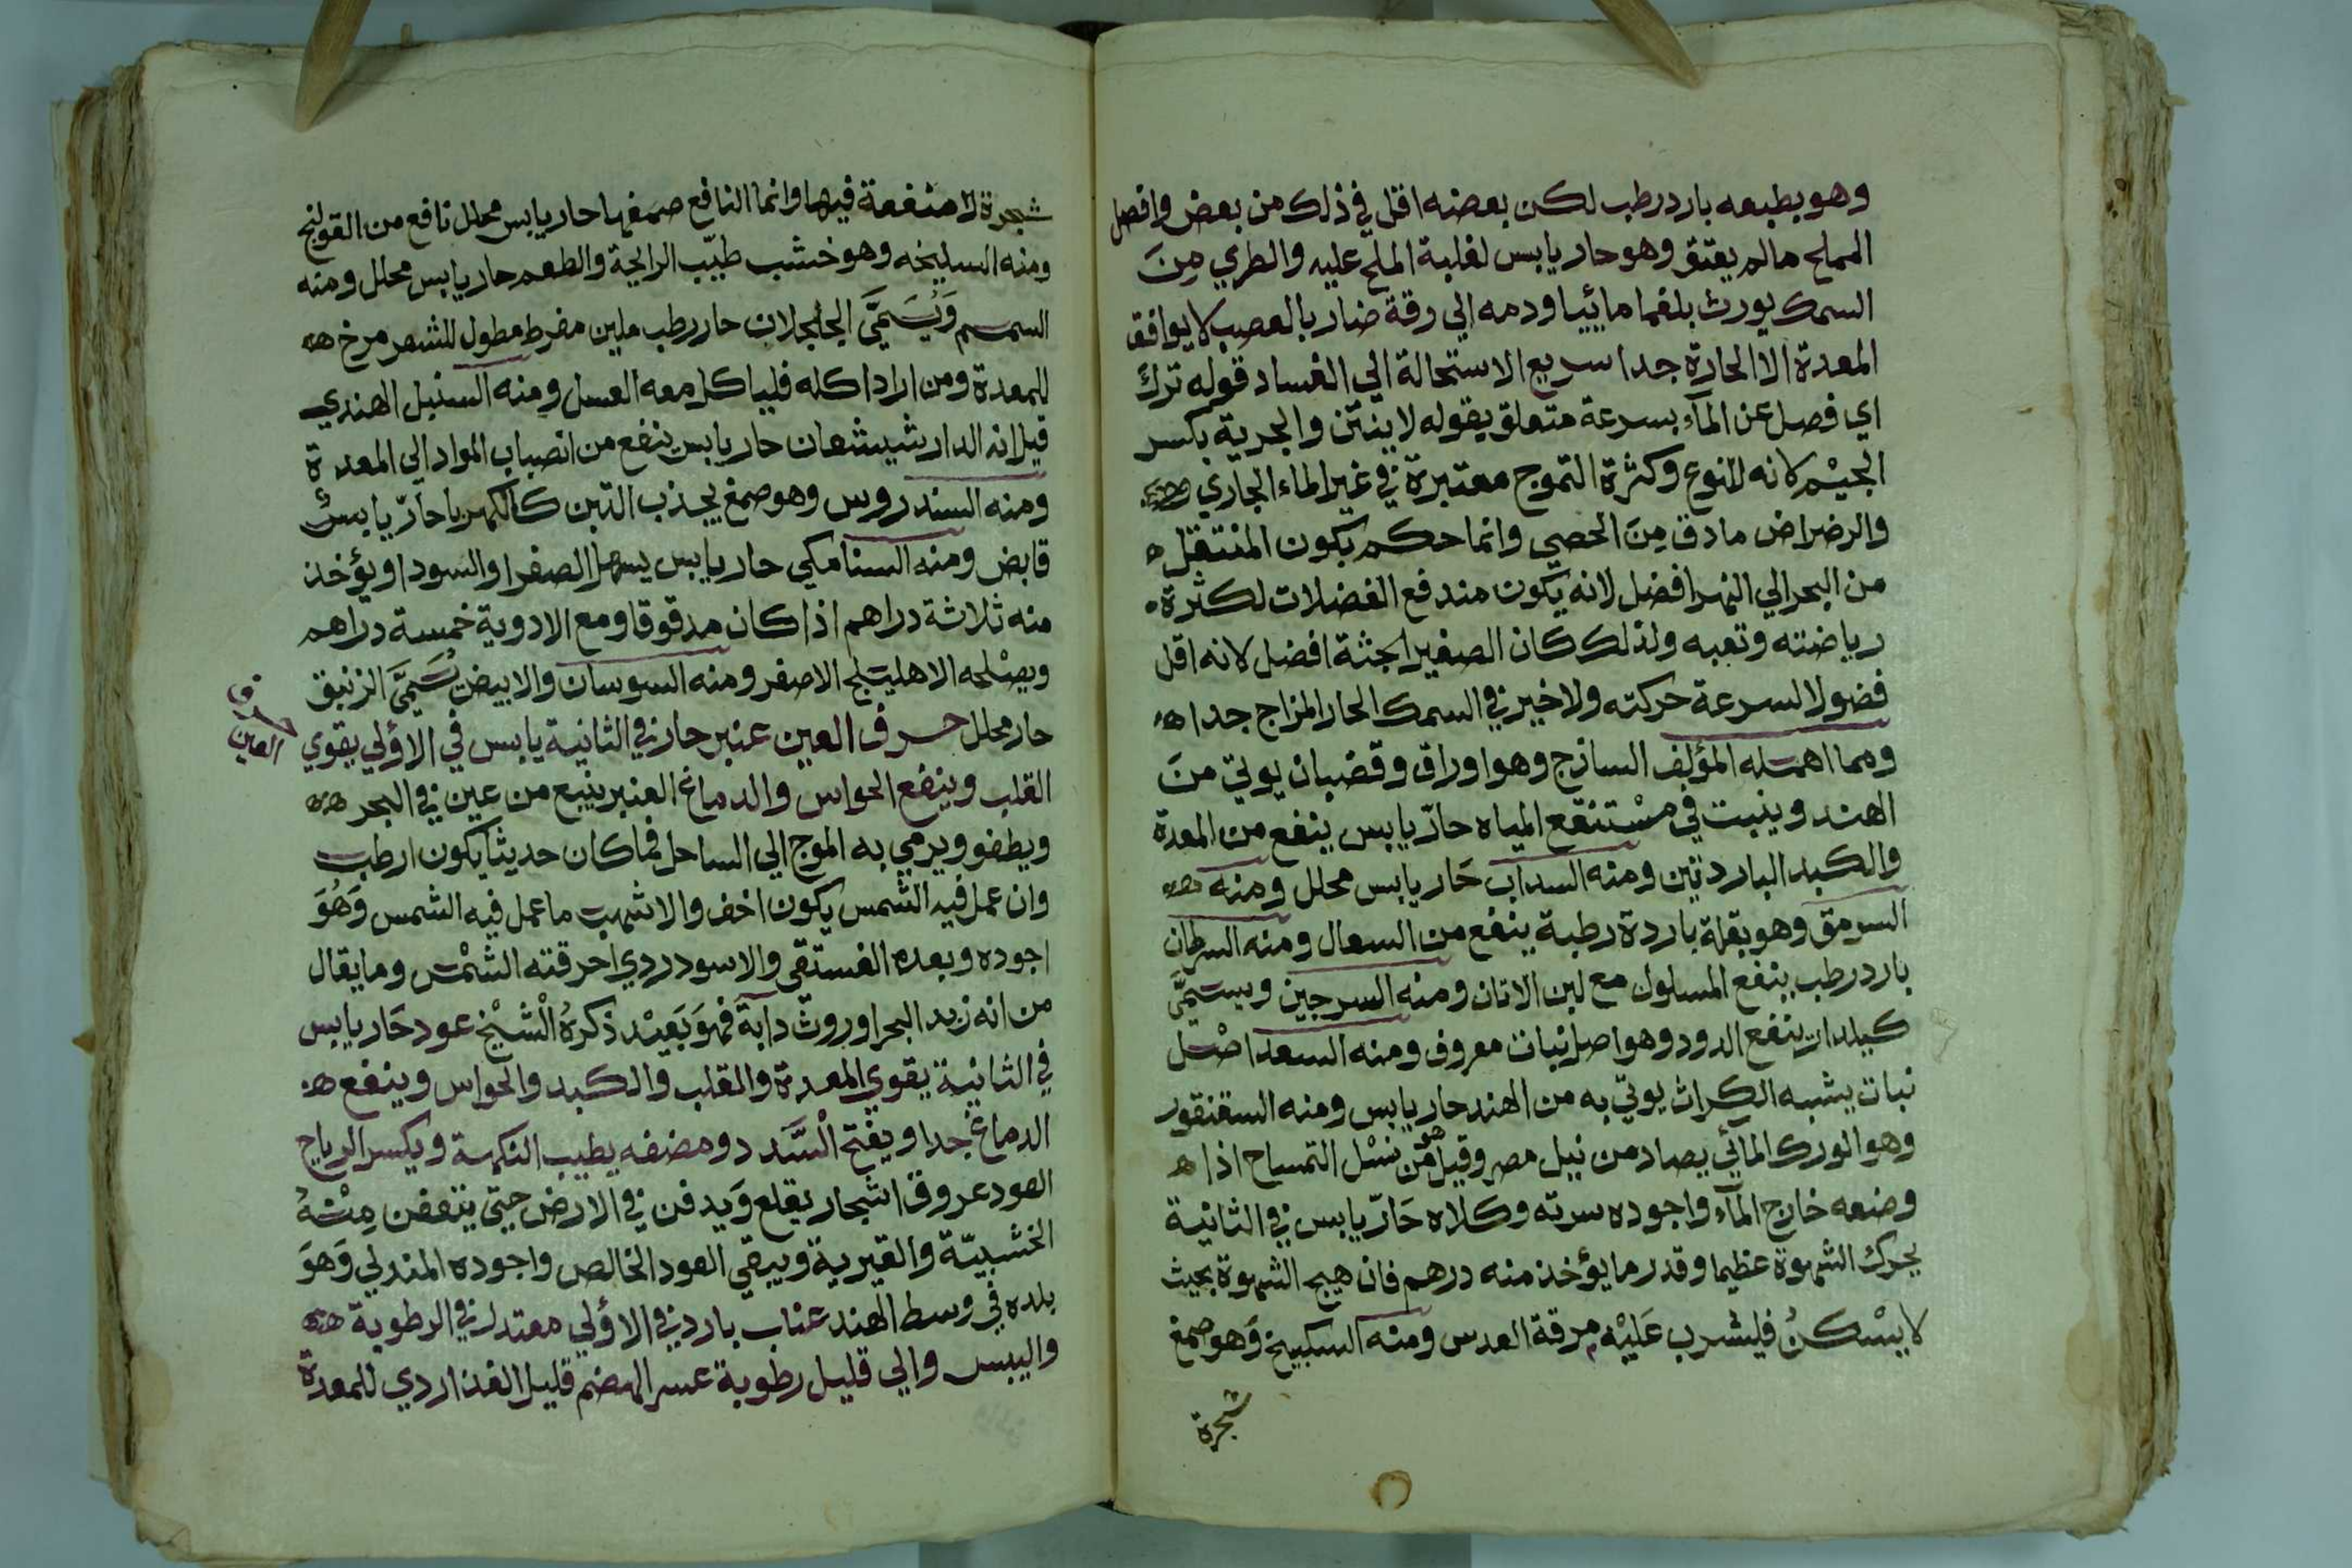 وهو بطبعه بارد رطب لكن بعضه اقل في ذلك من بعض وافضل
المملح مالم يعتق وهو حار يابس لغلبة الملح عليه والطري مِنَ
السمك يورث بلغما مائيا ودمه الي رقة ضار بالعصب لا يوافق
المعدة الا الحارة جدا سريع الاستحالة الي الفساد قوله ترك
اي فصل عن المآء بسرعة متعلق بقوله لا ينتن والجرية بكسر
الجيْم لانه للنوع وكثرة التموج معتبرة في غير الماء الجاري
والرضراض ما دق مِنَ الحصي وانما حكم بكون المنتقل
من البحر الي النهر افضل لانه يكون مندفع الفضلات لكثرة
رياضته وتعبه ولذلك كان الصغير الجثة افضل لانه اقل
فضولا لسرعة حركته ولا خير في السمك الحار المزاج جدا
ومما اهمله المؤلف الساذج وهو اوراق وقضبان يوتي منَ
الهند وينبت في مسْتنقع المياه حارّ يابس ينفع من المعدة
والكبد الباردتين ومنه السداب حَار يابس محلل ومنه
السرمق وهو بقلة باردة رطبة ينفع من السعال ومنه السرطان
بارد رطب ينفع المسلول مع لبن الاتان ومنه السرجين ويسمَّي
كيلدارن ينفع الدود وهو اصل نبات معروف ومنه السعد اصْل
نبات يشبه الكراث يوتي به من الهند حار يابس ومنه السقنقور
وهو الورك المائي يصاد من نيل مصر وقيل هو من نسْل التمساح اذا
وضعه خارج المآء واجوده سرته وكلاه حَارّ يابس في الثانية
يحرك الشهوة عظيما وقدر ما يؤخذ منه درهم فان هيج الشهوة بحيث
لا يسْكنُ فليشرب عَليْه مرقة العدس ومنه السكبينج وَهو صمغ
شجرة
شجرة لا منفعة فيها وانما النافع صمغها حار يابس محلل نافع من القولنج
ومنه السليخه وهو خشب طيّب الرايحة والطعم حار يابس محلل ومنه
السمسم وَيُسَمَّيَ الجلجلان حار رطب ملين مفرط مطول للشعر مرخ
للمعدة ومن اراد اكله فلياكل معه العسل ومنه السنبل الهندي
قيل انه الدارشيشعان حار يابس ينفع من انصباب المواد الي المعدة
ومنه السندروس وهو صمغ يجذب التبن كالكهربا حارّ يابسٌ
قابض ومنه السنامكي حار يابس يسهل الصفرا والسودا ويؤخذ
منه ثلاثة دراهم اذا كان مدقوقا ومع الادوية خمسة دراهم
ويصْلحه الاهليلج الاصفر ومنه السوسان والابيض يُسَمَّيَ الزنبق
حار محلل حرف العين عنبر حار في الثانية يابس في الاؤلي يقوي
حرف العين
القلب وينفع الحواس والدماغ العنبر ينبع من عين في البحر
ويطفو ويرمي به الموج الي الساحل فما كان حديثا يكون ارطب
وان عمل فيه الشمس يكون اخف والاشهب ما عمل فيه الشمس وَهُوَ
اجوده وبعده الفستقي والاسود ردي احرقته الشمْس وما يقال
من انه زبد البحر او روث دابة فهوَ بَعيْد ذكرهُ الْشيْخ عود حَار يابس
في الثانية يقوي المعدة والقلب والكبد والحواس وينفع
الدماغ جدا ويفتح الْسَّدد ومضغه يطيب النكهة ويكسر الرياح
العود عروق اشجار يقلع وَيدفن في الارض حتي يتعفن مِنْهُ
الخشبيّة والقيرية ويبقي العود الخالص واجوده المندلي وَهوَ
بلده في وسط الهند عناب بارد في الاؤلي معتدل في الرطوبة
واليبس والي قليل رطوبة عسر الهضم قليل الغذا ردي للمعدة